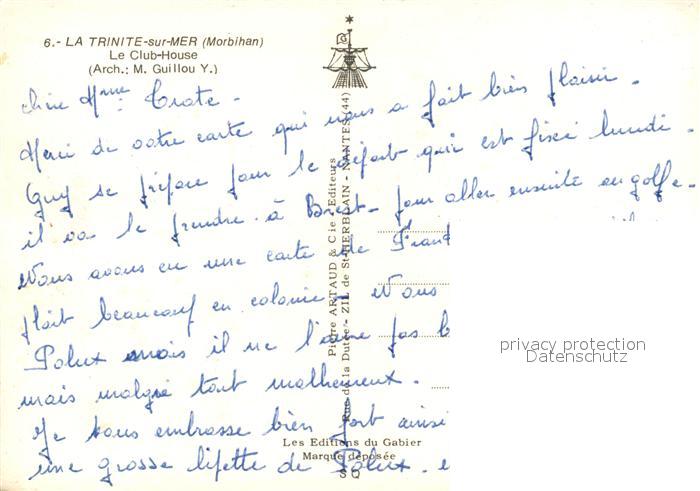 6.- LA TRINITE-sur-MER (Morbihan)
Le Club-House
(Arch.: M. Guillou Y.)
chère Mme Crate.
Merci de votre carte qui nous a fait bien plaisir.
Guy se prépare pour le départ qui est fixé lundi.
il va le prendre à Brest. pour aller ensuite en golfe.
Nous avons eu une carte de Franc
plait beaucoup en colonie. Nous
Polux mais il ne l'aime pas b
mais malgré tout malheureux.
Je vous embrasse bien fort ainsi
une grosse lipette de Polux. e
Pierre ARTAUD & Cie - Editeurs
Rue de la Dutée - ZIL de St-HERBLAIN - NANTES (44)
Les Editions du Gabier
Marque déposée
S Q
privacy protection
Datenschutz